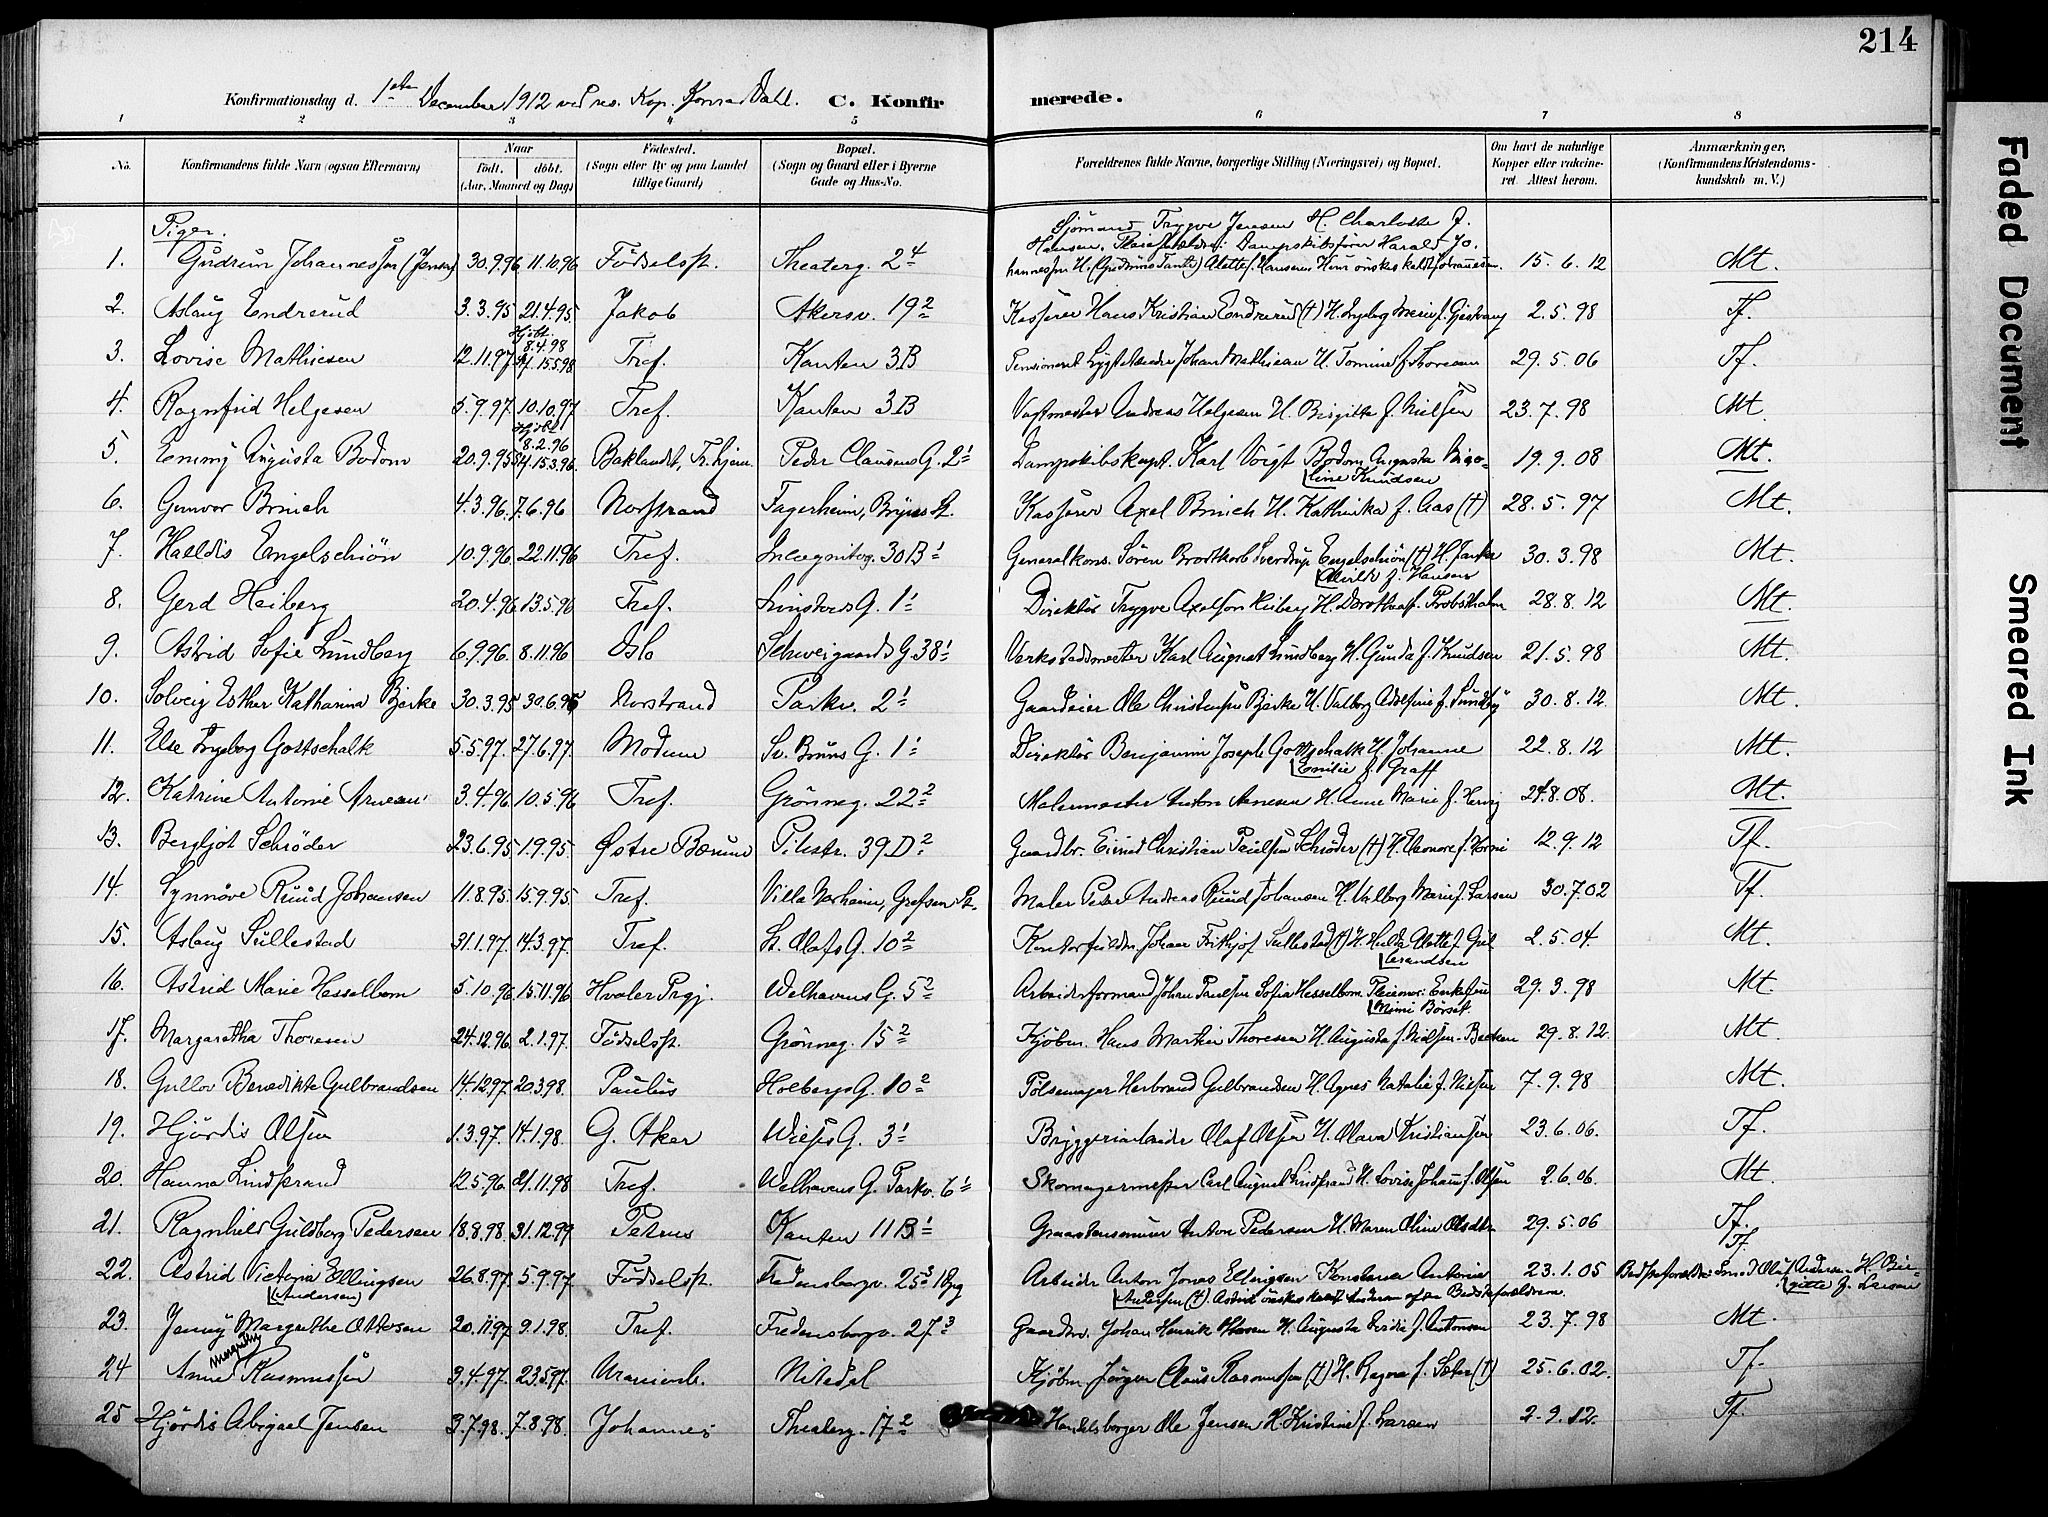 214
Konfirmationsdag d. 1ste December 1912 ved res. Kap. Konrad Dahl. C. Konfirmerede.
1 2 3 4 5 6 7 8
No. Konfirmandens fulde Navn (ogsaa Efternavn) Naar født. døbt. (Aar, Maaned og Dag) Fødested. (Sogn eller By og paa Landet tillige Gaard) Bopæl. (Sogn og Gaard eller i Byerne Gade og Hus-No. Forældrenes fulde Navne, borgerlige Stilling (Næringsvei) og Bopæl. Om havt de naturlige Kopper eller vaccineret Attest herom. Anmærkninger, (Konfirmandens Kristendomskundskab m. V.)
Piger.
Sjömand Trygve Jensen H. Charlotte f.
Hansen. Pleieforældre: Dampskibsfører Harald Jo-
1. Gudrun Johannessen (Jensen) 30.9.96 11.10.96 Födselsst. Theaterg. 2 4 hannessen H. (Gudruns Tante) Alette f. Hansen. Hun ønskes kaldt Johannesen. 15.6.12 Mt.
2. Aslaug Endrerud 3.3.95 21.4.95. Jakob Akersv. 19 2 Kasserer Hans Kristian Endrerud (†) H. Ingeborg Marie f. Gjestvang 2.5.98 Tf.
Hjdbt. 8.4.98
3. Lovise Mathiesen 12.11.97 St. 15.5.98 Tref. Kanten 3B Pensioneret Johan Mathiesen H. Tomine f. Thoresen 29.5.06 Tf.
4. Ragnfrid Helgesen 5.9.97. 10.10.97 Tref. Kanten 3B Vagtmester Andreas Helgesen H. Birgitte f. Nielsen 23.7.98 Mt.
Hjdbt 8.2.96
5. Emmy Augusta Bodom 20.9.95 St. 15.3.96. Baklandet, Tr.hjem. Peder Clausens G. 2 1 Dampskibskapt. Karl Voigt Bodom Augusta 19.9.08 Mt.
Knudsen
6. Gunvor Brinch 4.3.96. 7.6.96 Norstrand Fagerheim, Bryns St. Kasserer Axel Brinch H. Kathinka f. Aas (†) 28.5.97 Mt.
7. Haldis Engelschiøn 10.9.96 22.11.96 Tref. Incognitog. 30B 1 Generalkons. Sören Brodtkorb Sverdrup Engelschiøn (†) H. 30.3.98 Mt.
f. Hansen
8. Gerd Heiberg 20.4.96. 13.5.96 Tref. Linstows G. 1 1 Direktör Trygve Axelson Heiberg H. Dorothea f. Probsthahn 28.8.12 Mt.
9. Astrid Sofie Lundberg 6.9.96. 8.11.96 Oslo Schweigaards G. 38 1 Verkstedsmester Karl August Lundberg H. Gunda f. Knudsen 21.5.98 Mt.
10. Solveig Esther Katharina Bjerke 30.3.95 30.6.95 Norstrand Parkv. 2 1 Gaardeier Ole Christensen Bjerke H. Valborg Adolfine f. Sundby 30.8.12 Mt.
11. Else Ingeborg Gottschalk 5.5.97. 27.6.97. Modum Sv. Bruns G. 1 1 Direktör Benjamin Joseph Gottschalk H. Johanne 22.8.12 Mt.
Emilie f. Graff
12. Katrine Antonie Arnesen 3.4.96 10.5.96 Tref. Grönneg. 22 2 Malermester Anton Arnesen H. Anne Marie f. 24.8.08. Mt.
13. Bergljot Schröder 23.6.95 1.9.95. Østre Bærum Pilestr. 39D 2 Gaardbr. Eivind Christian Paulsen Schröder (†) H. Eleonore f. 12.9.12 Tf.
14. Synnöve Ruud Johansen 11.8.95. 15.9.95. Tref. Villa Norheim, Grefsen St. Maler Peder Andreas Ruud Johansen H. Valborg Marie f. Larsen 30.7.02 Tf.
15. Aslaug Sullestad 31.1.97. 14.3.97. Tref. St. Olafs G. 10 2 Kontorfuldm. Johan Frithjof Sullestad (†) H. Hulda Alette f. Gul- 2.5.04. Mt.
brandsen
16. Astrid Marie Hesselbom 5.10.96 15.11.96 Hvaler Prgj. Welhavens G. 5 2 Arbeidsformand Johan Paulsen Sofia Hesselbom. Pleiemor: Enkefru 29.3.98 Mt.
Mimi Börset.
17. Margaretha Thoresen 24.12.96 2.1.97. Födselsst. Grönneg. 15 2 Kjöbm. Hans Martin Thoresen H. Augusta f. Nielsen-Becken 29.8.12. Mt.
18. Gullov Benedikte Gulbrandsen 14.12.97 20.3.98. Paulus Holbergs G. 10 2 Pölsemager Herbrand Gulbrandsen H. Agnes Natalie f. Nielsen 7.9.98 Mt.
19. Hjördis Olsen 1.3.97. 14.1.98. G. Aker Wessels G. 3 1 Bryggeriarbeider Olaf Olsen H. Olava Kristiansen 23.6.06. Tf.
20. Hanna Lindstrand 12.5.96 21.11.98 Tref. Welhavens G. Parkv. 6 1 Skomagermester Carl August Lindstrand H. Lovise Johanne f. Olsen 2.6.06. Mt.
21. Ragnhild Guldborg Pedersen 18.8.98. 31.12.99 Petrus Kanten 11B 1 Anton Pedersen H. Maren Oline Olsdtr. 29.5.06 Tf.
22. Astrid Victoria Ellingsen 26.8.97. 5.9.97. Födselsst. Fredensborgv. 25 3 Opg Arbeider Anton Jonas Ellingsen Konstance Antonie 23.1.05 Tf. Bedsteforældre: Smed Oluf Andersen H. Bir-
(Andersen) Andersen (†). Astrid ønskes kaldt Andersen efter Bedsteforældrene. gitte f. Larsen
23. Jenny Margrethe Ottesen 20.11.97 9.1.98. Tref. Fredensborgv. 27 3 Gaardbr. Johan Henrik Ottesen H. Augusta f. Antonsen 23.7.98 Mt.
24 Anne Margrethe Rasmussen 3.4.97. 23.5.97. Uranienb. Nitedal Kjöbm. Jörgen Claus Rasmussen (†) H. Ragna f. Seter (†) 25.6.02. Tf.
25 Hjördis Abigael Jensen 3.7.98. 7.8.98. Johannes Theaterg. 17 2 Handelsborger Ole Jensen H. Kristine f. Larsen 2.9.12. Tf.
Faded Document
Smeared Ink